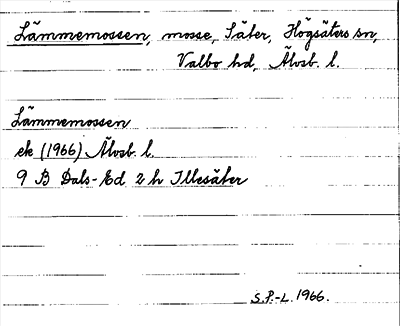 Lämmemossen, mosse, Säter, Högsäters sn,
Valbo hd, Älvsb. l.
Lämmemossen
ek (1966) Älvsb. l.
9 B Dals-Ed 2 h Illesäter
S.P.-L. 1966.